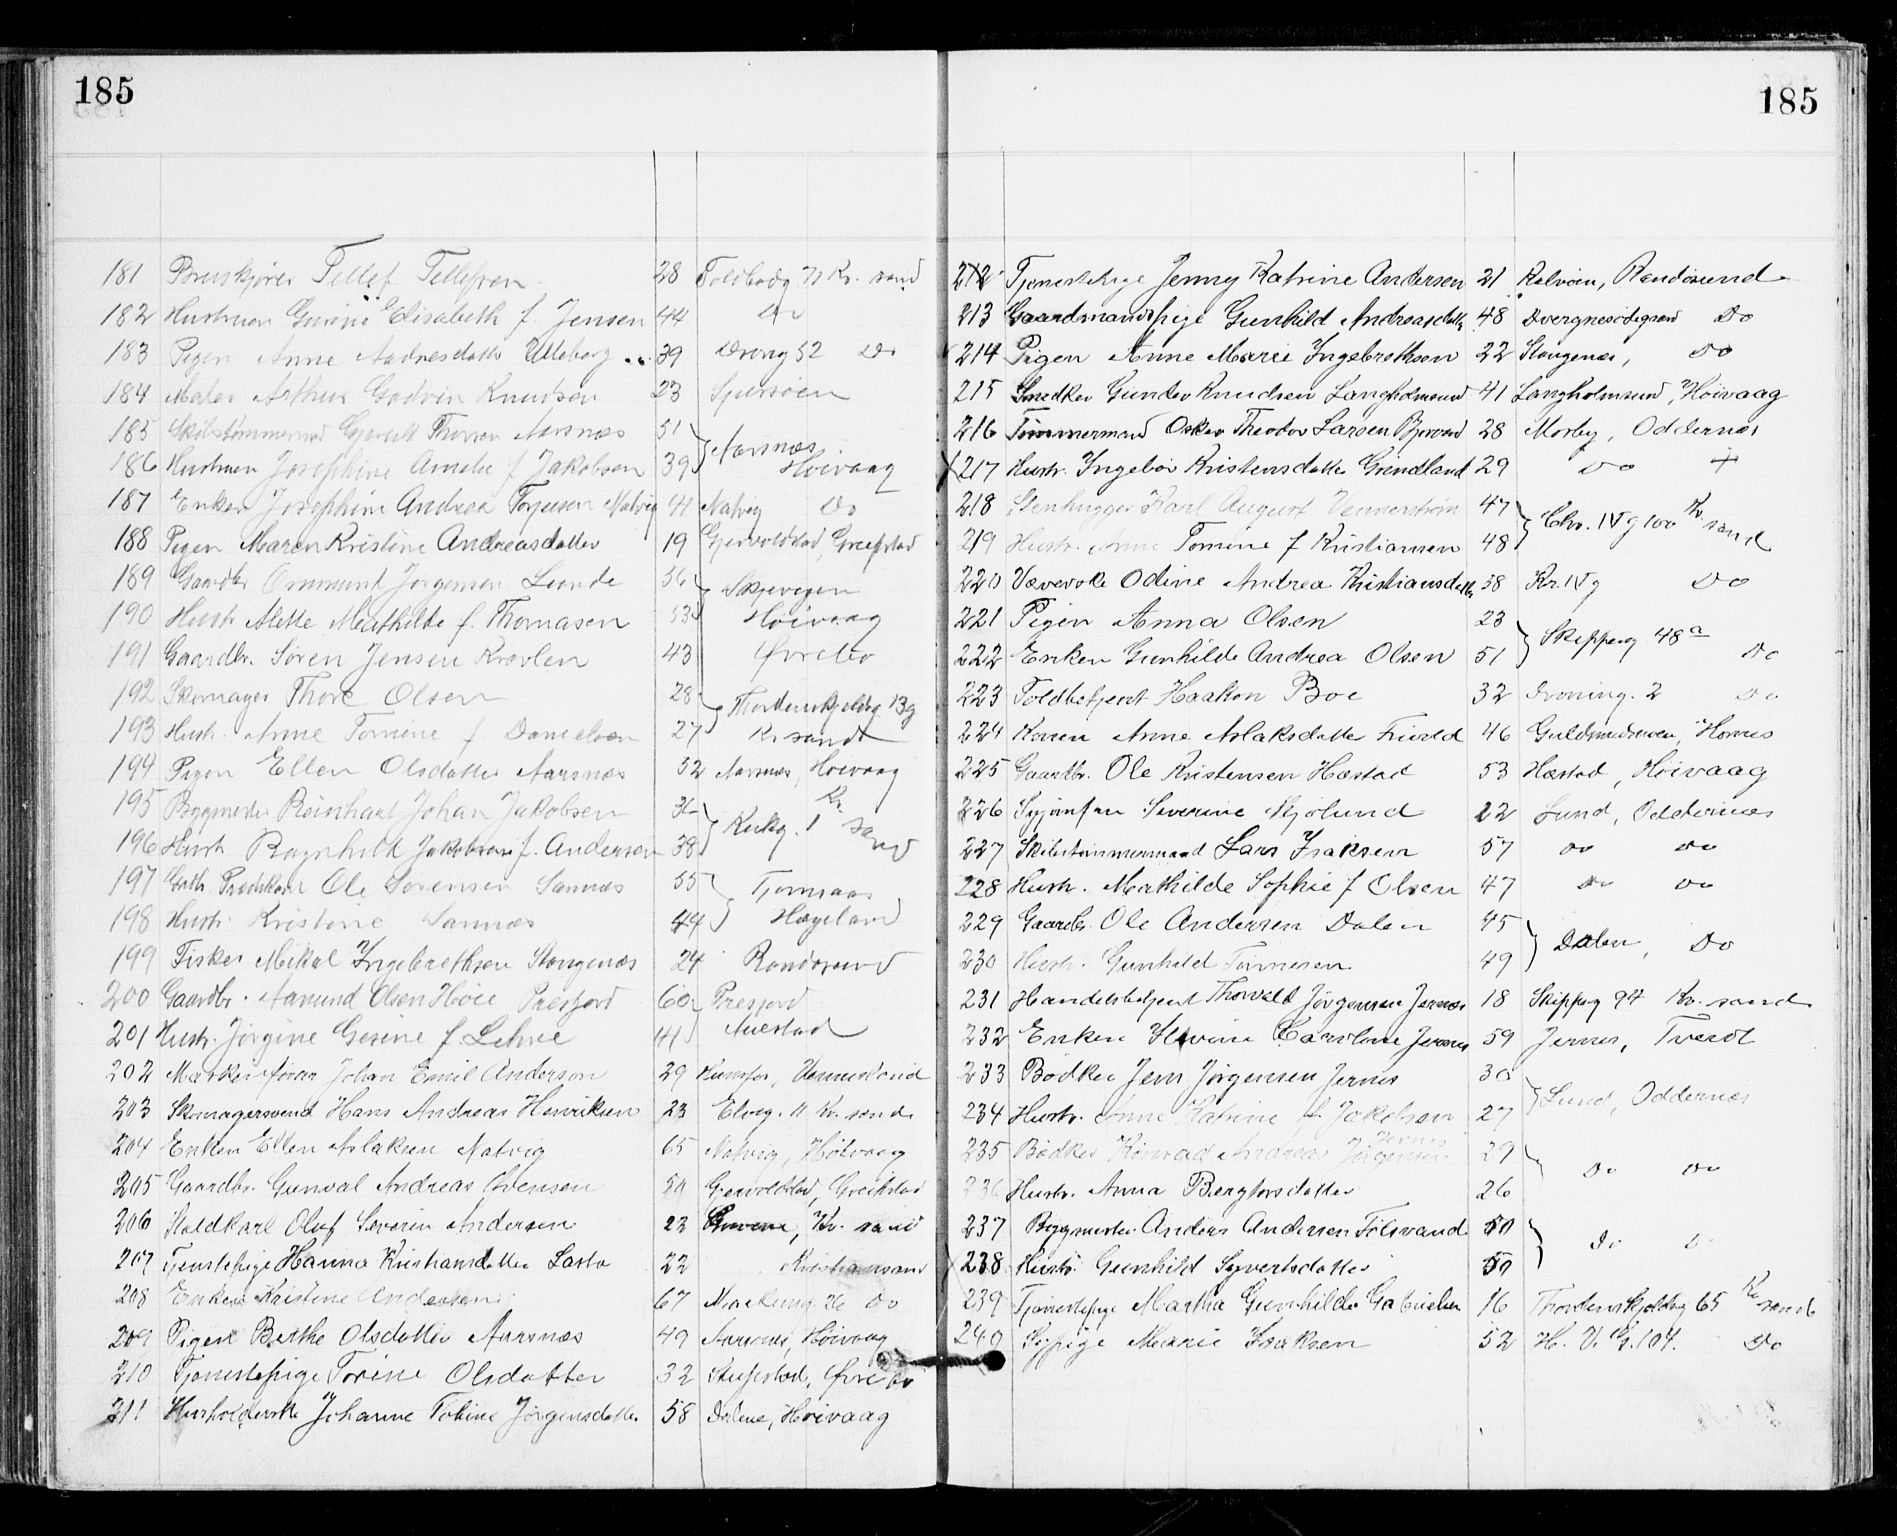 185
181 Tellef Tellefsen 28 Toldbodg 71 Kr. sand
182 Hustruen Gurine Elisabeth f. Jensen 44 Do
183 Pigen Anne Aadnesdatter Ulleberg 39 Drong 52 Do
184 Maler Arthur Godvin Knudsen 23
185 Thorsen Aarsnæs 51
Aarsnæs
186 Hustruen Josephine Amalie f Jakobsen 39 Höivaag
187 Enken Josephine Andrea Torjusen Natvig 41 Natvig Do
188 Pigen Maren Kristine Andreasdatter 19
189 Gaardbr Ommund Jørgensen Lunde 56
190 Hustr Alette Mathilde f. Thomasen 53 Höivaag
191 Gaardbr. Sören Jensen 43 Øvrebö
192 Skomager Thore Olsen 28 Thordenskjoldsg 13
193 Hustr. Anne Tomine f Danielsen 27 Kr sand
194 Pigen Ellen Olsdatter Aarsnæs 52 Aarsnæs, Höivaag
195 Bygmester Reinhart Johan Jakobsen
Kirkg. 1 Kr. sand
196 Hustr Ragnhild Jakobsen f. Andersen 38
197 Ole Sørensen Sannæs 55
198 Hustr. Kristine Sannæs 44 Hægeland
199 Fisker Mikal Ingebrethsen Stangenæs 24 Randøsund
200 Gaardbr. Aamund Olsen 60
201 Hustr. Jörgine Gesine f 41
202 Johan Emil Andersen 29 Vennesland
203 Skomagersvend Hans Andreas Henriksen 23 Elveg. 11 Kr. sand
204 Enken Ellen Aslaksen Natvig 65 Natvig, Höivaag
205 Gaardbr. Gunval Andreas 50
206 Staldkarl Oluf Severin Andersen 23 Kr. sand
207 Tjenstepige Hanna Kristiansdatter 22 Kristiansand
208 Enken Kristine Andersen 67 Do
209 Pigen Berthe Olsdatter Aarsnæs 49 Aarsnæs, Höivaag
210 Tjenestepige Torine Olsdatter 32 Øvrebø
211 Husholderske Johanne Tobine Jörgensdatter 58 Dalene, Höivaag
185
212 Tjenestepige Jenny Katrine Andersen 21 Randøsund
213 Gaardmandspige Gunhild Andreasdatter 48 Do
214 Pigen Anne Marie Ingebrethsen 22 Stangenæs, Do
215 Snedker Gunder Knudsen Langholmsund 41 Langholmsund, Höivaag
216 Tømmermand Oskar Theodor Larsen 28 Mosby, Oddernæs
217 Hustr. Ingebor Kristensdatter Grindland 29 Do +
218 Stenhugger Karl August Vennerström 47
Chr. IV g 100 Kr. sand
219 Hustr. Anne Tomine f Kristiansen 48
220 Væverske Odine Andrea Kristiansdatter 58 Kr. IV g Do
221 Pigen Anna Olsen 23
Skipperg 48 a
222 Enken Gunhilde Andrea Olsen 51 Do
223 Toldbetjent Haakon Boe 32 Dronning. 2 Do
224 Konen Anne Aslaksdatter 46
225 Gaardbr. Ole Kristensen Hæstad 53 Hæstad, Höivaag
226 Severine 22 Lund, Oddernæs
227 Skibstømmermand Lars Isaksen 57 Do Do
228 Hustr. Mathilde Sophie f Olsen 47 Do Do
229 Gaardbr. Ole Andersen Dalen 45
Dalen, Do
230 Hustr. Gunhild Tønnesen 49
231 Handelsbetjent Thorvald Jörgensen Jernæs 18 Skipperg 94 Kr. sand
232 Enken Caroline Jernæs 59 Jernæs, Tveidt
233 Bödker Jens Jörgensen Jernes 30
Lund, Oddernæs
234 Hustr. Anne Katrine f. Jakobsen 27
Jernes
235 Bødker Konrad Andreas Jörgensen 29
Do Do
236 Hustr. Anna Bergtorsdatter 26
237 Bygmester Anders Andersen 50
Do Do
238 Hustr. Gunhild Syvertsdatter 50
239 Tjenestepige Martha Gunhilde Gabrielsen 16 Thordenskjoldsg 65 Kr. sand
240 Sypige Marie Isaksen 52 H. V. G. 104. Do